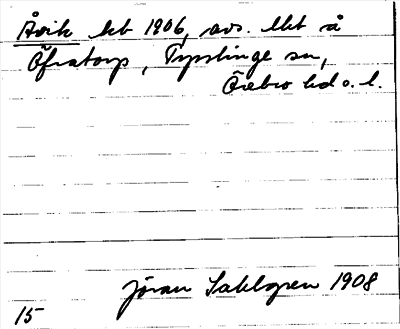 Åvik lht 1906, avs. lht å
Öfvatorp, Tysslinge sn,
Örebro hd o. l.
Jöran Sahlgren 1908
15